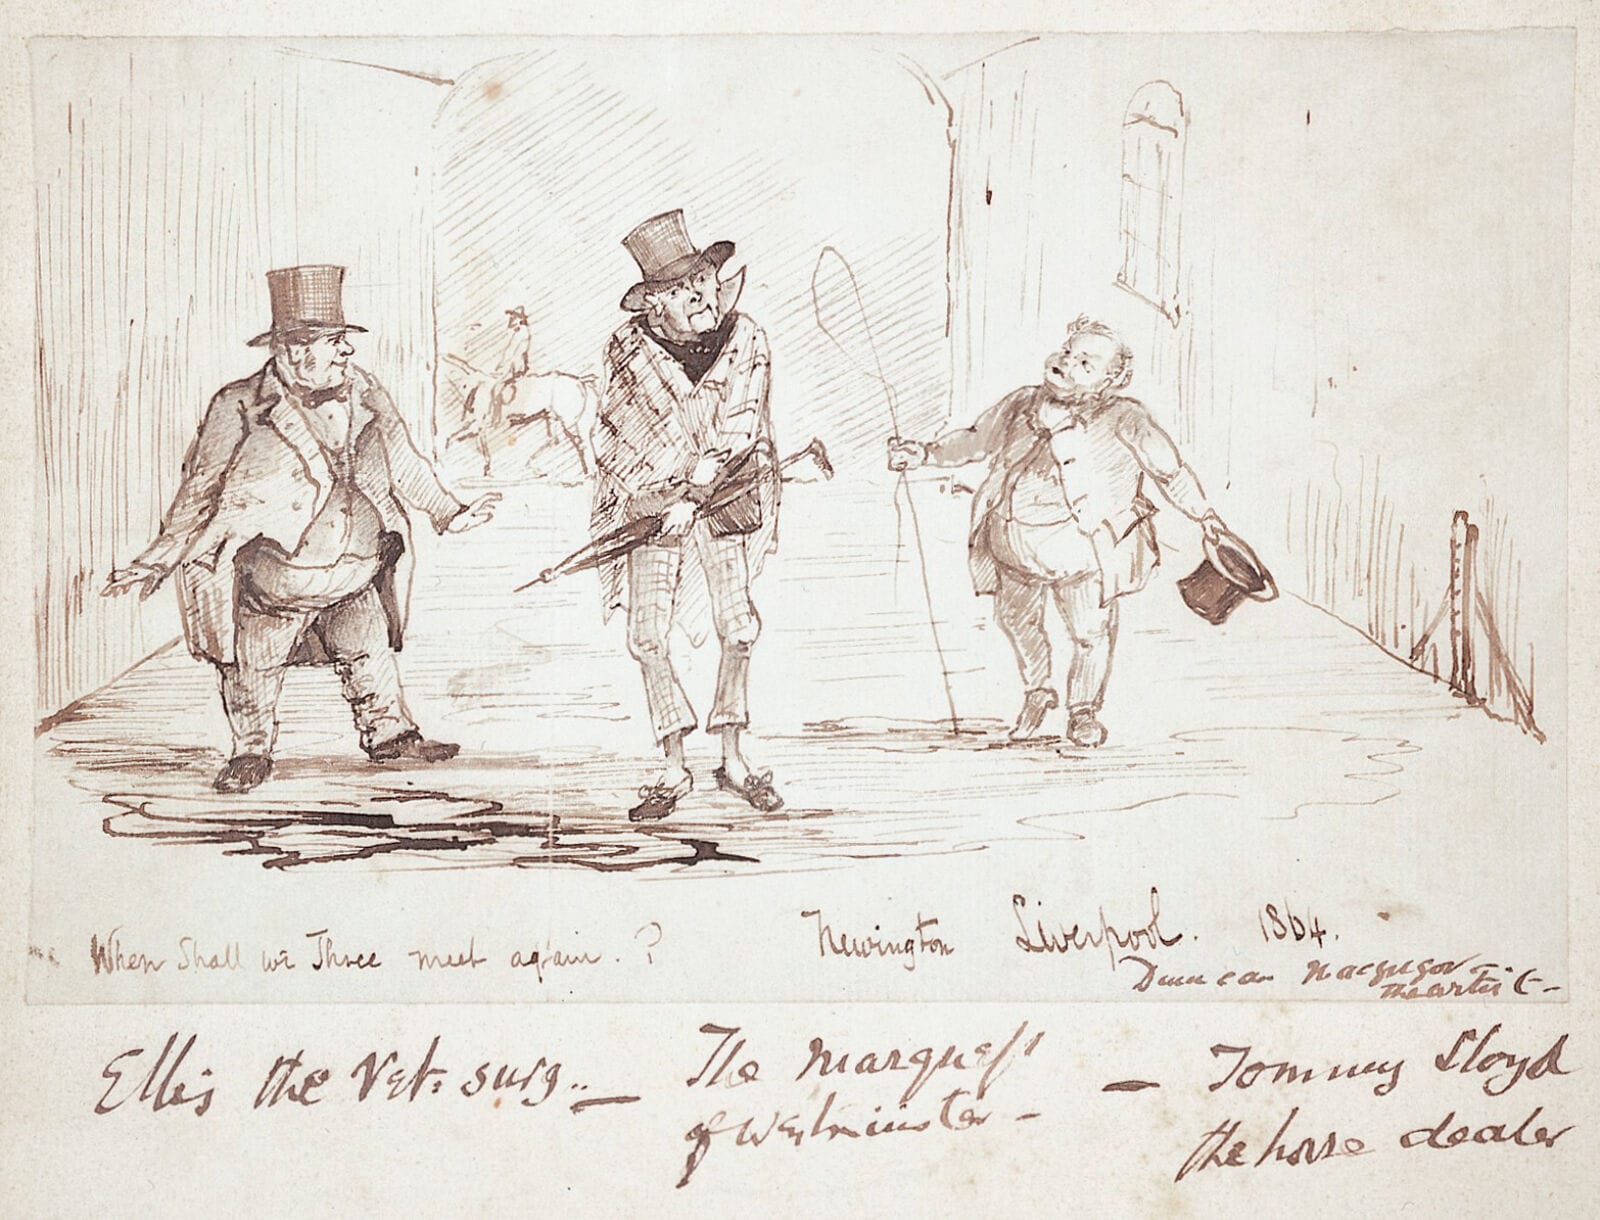 When Shall we Three meet again. ?
Newington Liverpool. 1864.
Duncan Macgregor
the artist -
Ellis the Vet: surg.. — The Marquess
of Westminster — — Tommy Lloyd
the horse dealer